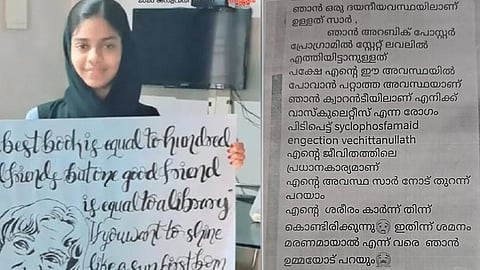 best book is equal to hundred
friends but one good friend
is equal to a library
If you want to shine
like a sun first burn
ഞാൻ ഒരു ദയനീയവസ്ഥയിലാണ്
ഉള്ളത് സാർ ,
ഞാൻ അറബിക് പോസ്റ്റർ
പ്രോഗ്രാമിൽ സ്റ്റേറ്റ് ലവലിൽ
എത്തിയിട്ടാനുള്ളത്
പക്ഷേ എന്റെ ഈ അവസ്ഥയിൽ
പോവാൻ പറ്റാത്ത അവസ്ഥയാണ്
ഞാൻ ക്വാറൻടീയിലാണ് എനിക്ക്
വാസ്കുലേറ്റിസ് എന്ന രോഗം
പിടിപെട്ട് syclophosfamaid
engection vechittanullath
എന്റെ ജീവിതത്തിലെ
പ്രധാനകാര്യമാണ്
എന്റെ അവസ്ഥ സാർ നോട് തുറന്ന്
പറയാം
എന്റെ ശരീരം കാർന്ന് തിന്ന്
കൊണ്ടിരിക്കുന്നു😥 ഇതിന്ന് ശമനം
മരണമായാൽ എന്ന് വരെ ഞാൻ
ഉമ്മയോട് പറയും😭